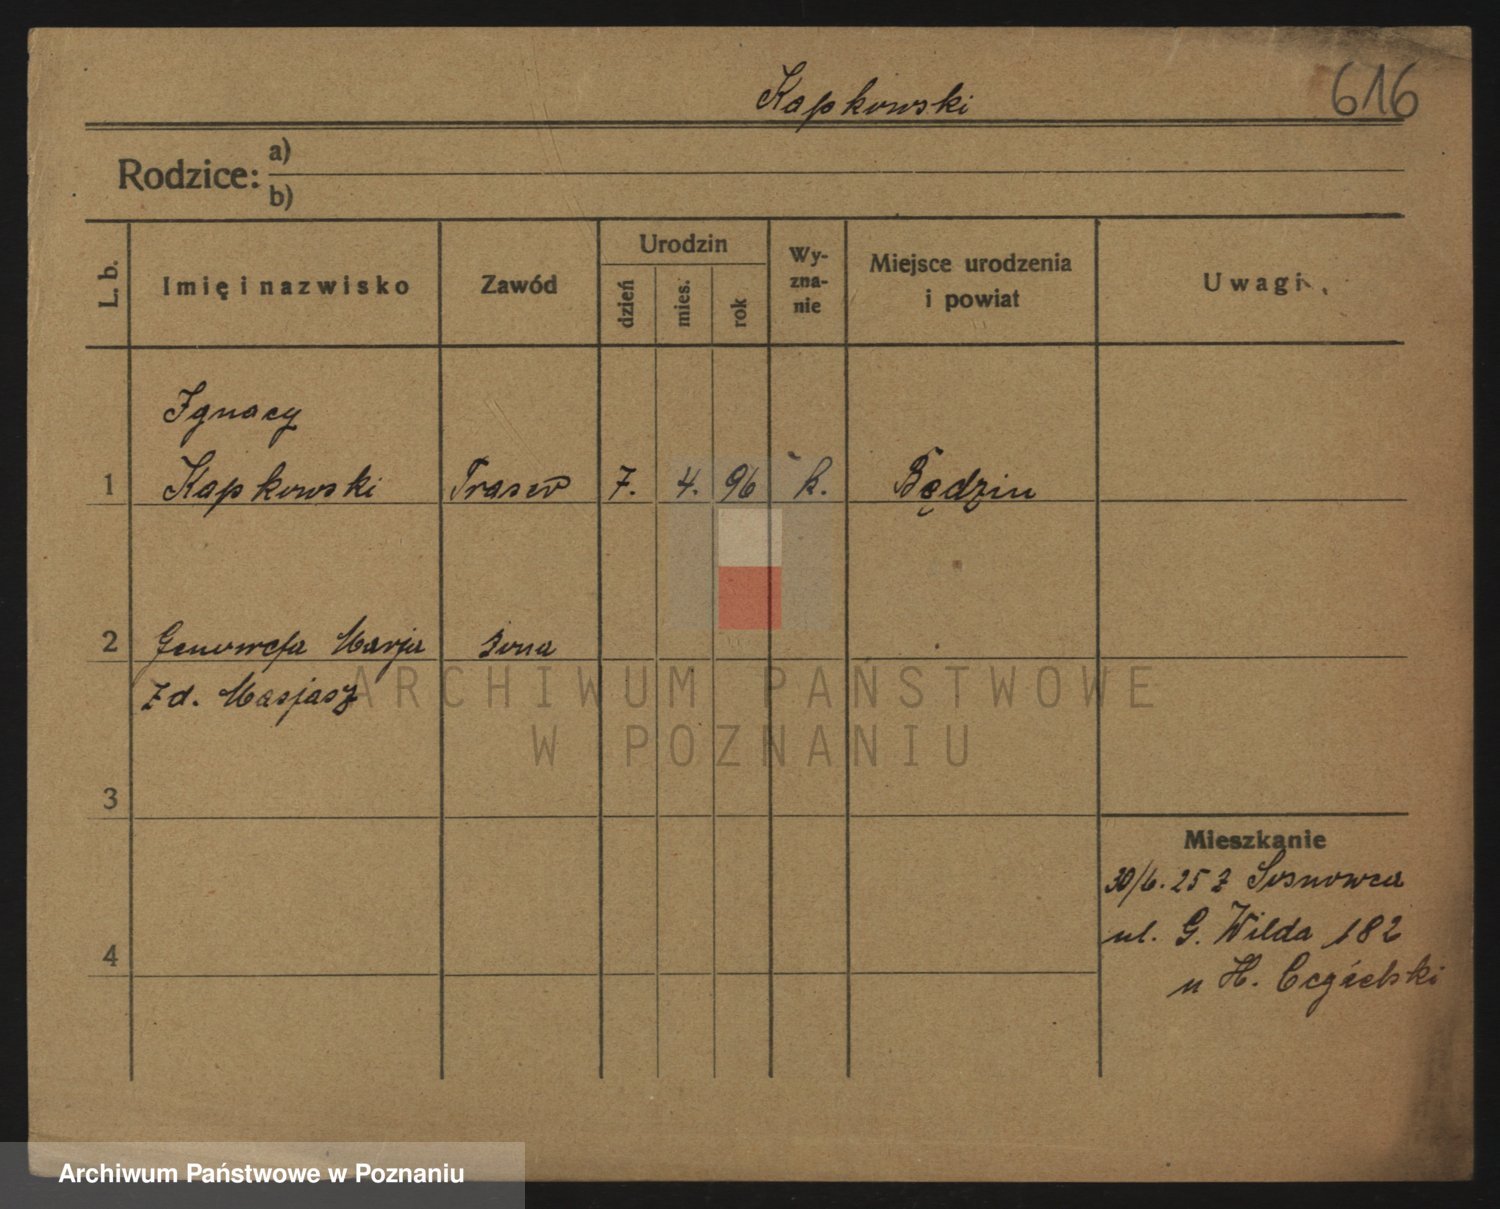 Kapkowski
616
Rodzice: a)
b)
L. b.
Imię i nazwisko
Zawód
Urodzin
dzień
mies.
rok
Wy-
zna-
nie
Miejsce urodzenia
i powiat
Uwagi
Ignacy
1 Kapkowski 7. 4. 96 k. Będzin
2 Genowefa Marja żona
zd. Masjasz
3
Mieszkanie
30/6. 25 z Sosnowca
ul. G. Wilda 182
4
u H. Cegielski
ARCHIWUM PAŃSTWOWE
W POZNANIU
Archiwum Państwowe w Poznaniu